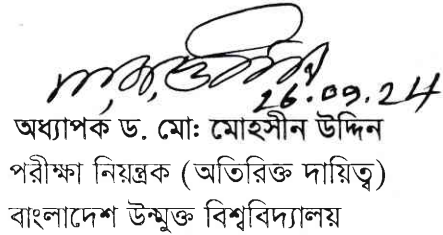 26.09.24
অধ্যাপক ড. মো: মোহসীন উদ্দিন
পরীক্ষা নিয়ন্ত্রক (অতিরিক্ত দায়িত্ব)
বাংলাদেশ উন্মুক্ত বিশ্ববিদ্যালয়